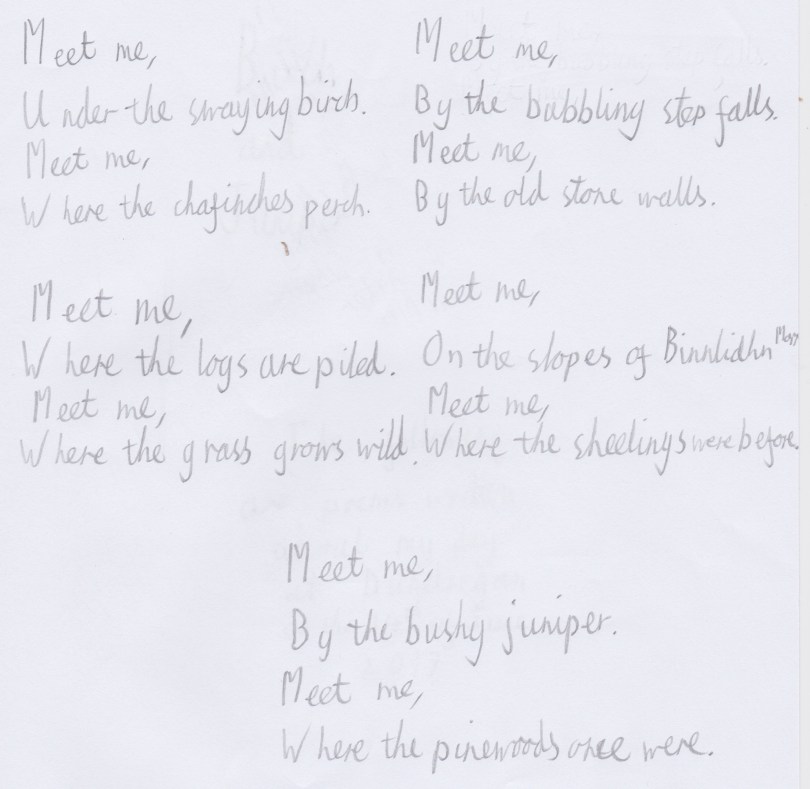 Meet me,
Under the swaying birch.
Meet me,
Where the chafinches perch.
Meet me,
By the bubbling step falls.
Meet me,
By the old stone walls.
Meet me,
Where the logs are piled.
Meet me,
Where the grass grows wild.
Meet me,
On the slopes of Binnlidhn Mor
Meet me,
Where the sheelings were before.
Meet me,
By the bushy juniper.
Meet me,
Where the pinewoods once were.